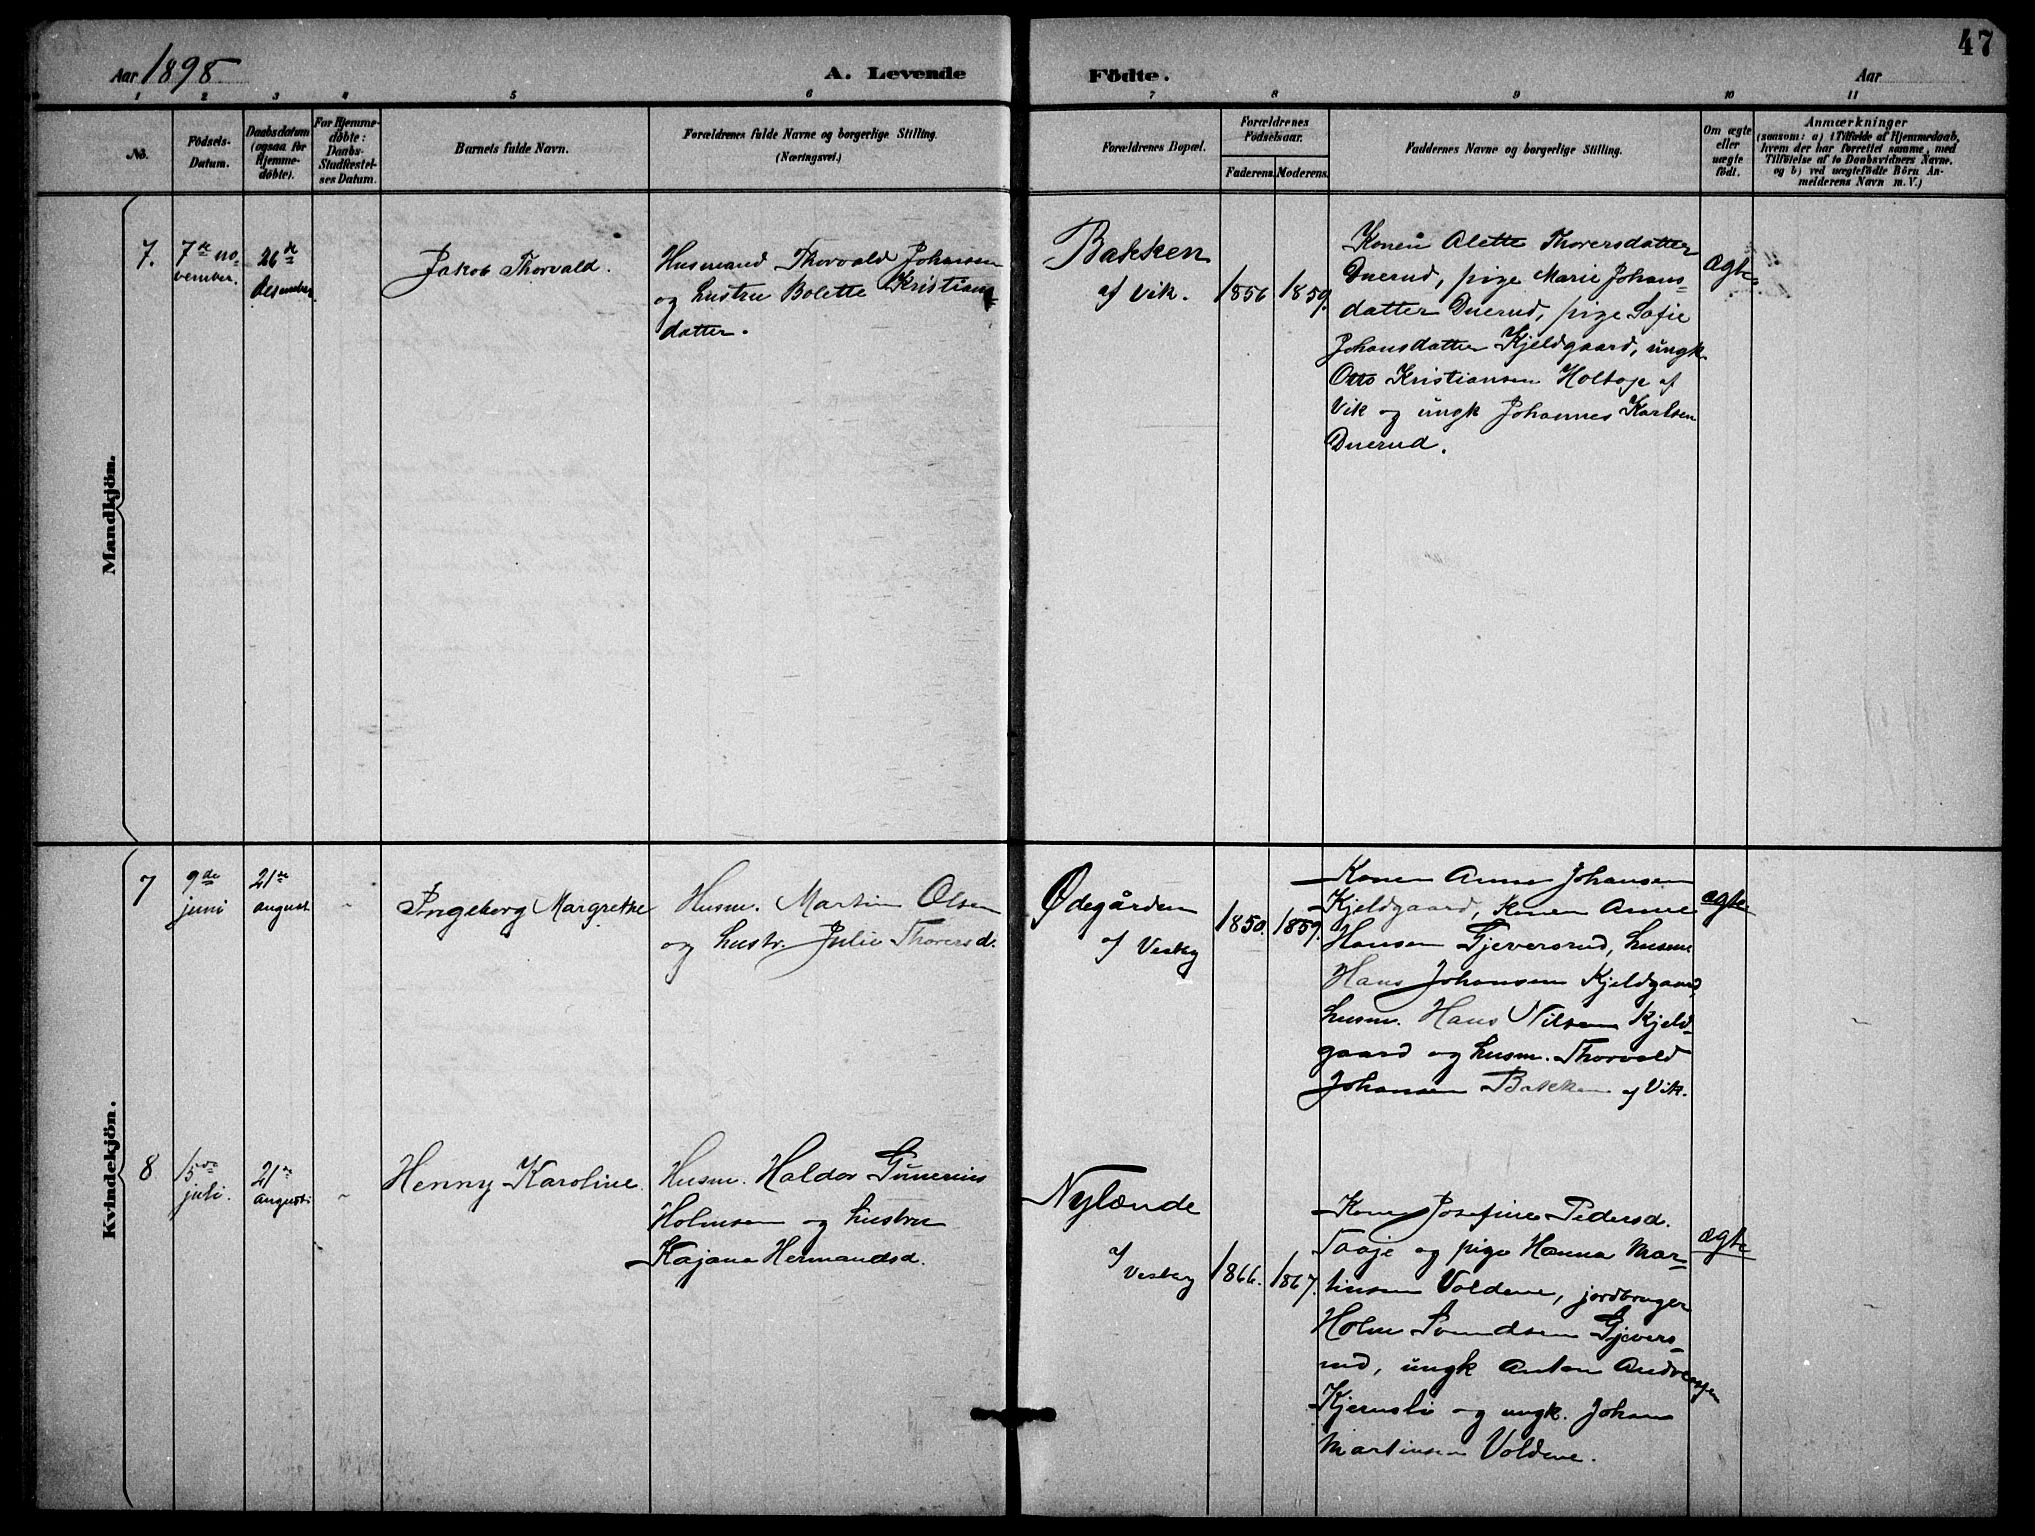 47
Aar 1898
A. Levende
Födte.
Aar
1 2 3 4 5 6 7 8 9 10 11
No.
Födsels-
Datum.
Daabsdatum
(ogsaa for
Hjemme-
döbte).
For Hjemme-
döbte:
Daabs-
Stadfæstel-
ses Datum.
Barnets fulde Navn.
Forældrenes fulde Navne og borgerlige Stilling.
(Næringsvei.)
Forældrenes Bopæl.
Forældrenes
Födselsaar.
Faderens.
Moderens.
Faddernes Navne og borgerlige Stilling.
Om ægte
eller
uægte
födt.
Anmærkninger
(saasom: a) i Tilfælde af Hjemmedaab,
hvem der har forrettet samme, med
Tilföielse af to Daabsvidners Navne.
og b) ved uægtefödte Börn An-
melderens Navn m.V.)
Mandkjön.
7.
7de no-
vember.
26de
desember
Jakob Thorvald.
Husmand Thorvald Johansen
og hustru Bolette Kristians-
datter.
Bakken
af Vik.
1856
1859.
Konen Alette Thoversdatter
Duerud, pige Marie Johans-
datter Duerud, pige Sofie
Johansdatter Kjeldgaard, ungk.
Otto Kristiansen Holtop af
Vik og ungk Johannes Karlsen
Duerud.
ægte.
Kvindekjön.
7
9de
juni
21de
august
-
Ingeborg Margrethe
Husm. Martin Olsen
og hustr. Julie Thoversd.
Ødegården
af Vestby
1850.
1859.
Konen Anne Johansen
Kjeldgaard, Konen Anne
Hansen Gjeversrud, husm
Hans Johansen Kjeldgaard,
husm. Hans Nilsen Kjeld-
gaard og husm. Thorvald
Johansen Bakken af Vik.
ægte
8.
15de
juli.
21de
august.
-
Henny Karoline.
Husm. Haldor Gunerius
Holmsen og hustru
Kajana Hermandsd.
Nylænde
af Vestby
1866.
1867.
Kone Josefine Pedersd.
Taaje og pige Hanna Mar-
tinsen Voldene, jordbruger
Holm Svendsen Gjevers-
rud, ungk Anton Andreassen
Kjernsli og ungk. Johan
Martinsen Voldene.
ægte